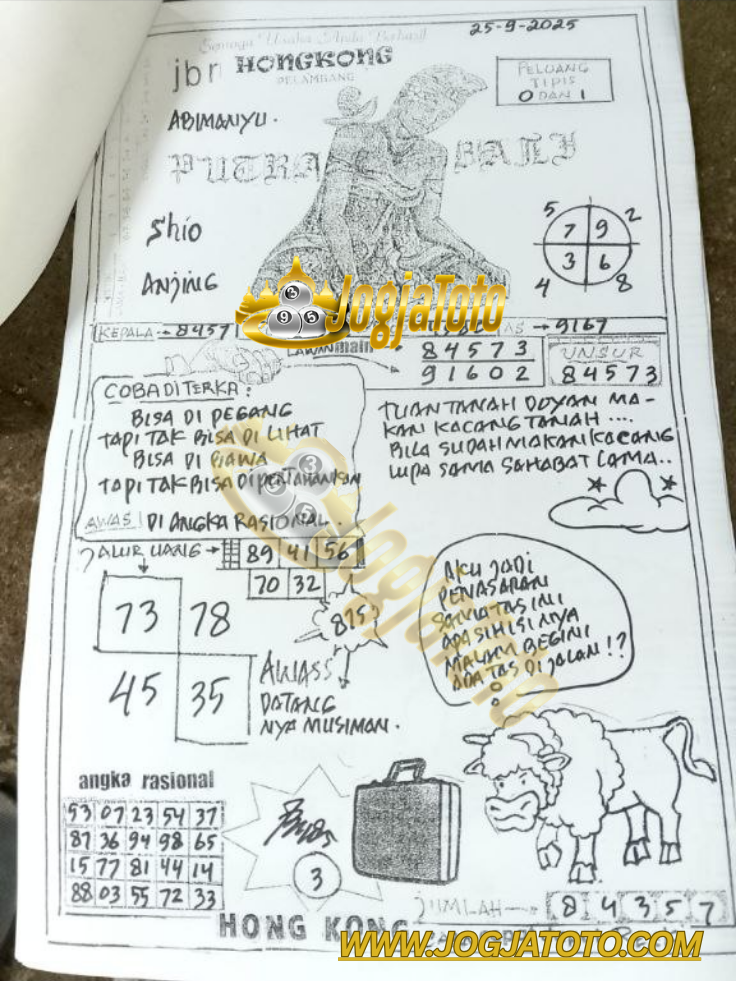 25-9-2025
Semoga Usaha Anda Berhasil
jbr HONGKONG
PELAMBANG
PELUANG
TIPIS
0 DAN 1
ABIMANYU.
PUTRA BALI
Shio
ANJING
5 2
7 9
3 6
4 8
JogjaToto
KEPALA 84571
AS → 9167
LAWAN main
84573
91602
UNSUR
84573
COBA DI TERKA:
BISA DI PEGANG
TAPI TAK BISA DI LIHAT
BISA DI BAWA
TAPI TAK BISA DI PERTAHANKAN
AWAS! DI ANGKA RASIONAL.
TUAN TANAH DOYAN MA-
KAN KACANG TANAH ....
BILA SUDAH MAKAN KACANG
LUPA SAMA SAHABAT LAMA..
JALUR UANG → 89 41 56
70 32
73 78
45 35
875
AWASS
DATANG
NYA MUSIMAN.
AKU JADI
PENASARAN
SAMA TAS INI
APA SIH ISI NYA
MALAM BEGINI
ADA TAS DI JALAN!?
angka rasional
53 07 23 54 37
87 36 94 98 65
15 77 81 44 14
88 03 55 72 33
3
JUMLAH → 8 4 3 5 7
HONG KONG
WWW.JOGJATOTO.COM